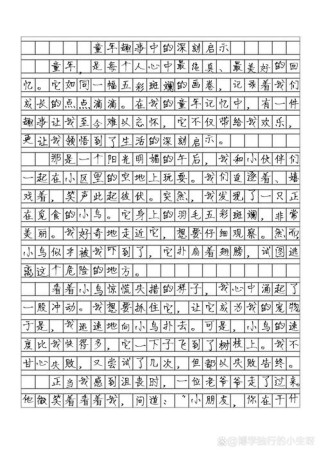 童年趣事中的深刻启示
童年，是每个人心中最纯真、最美好的回
忆。它如同一幅五彩斑斓的画卷，记录着我们
成长的点点滴滴。在我的童年记忆中，有一件
趣事让我至今难以忘怀，它不仅带给我欢乐，
更让我领悟到了生活的深刻启示。
那是一个阳光明媚的午后，我和小伙伴们
一起在小区里的空地上玩耍。我们追逐着、嬉
戏着，笑声此起彼伏。突然，我发现了一只正
在觅食的小鸟。它身上的羽毛五彩斑斓，非常
美丽。我好奇地走近它，想要仔细观察。然而，
小鸟似乎被我吓到了，它扑扇着翅膀，试图逃
离这个危险的地方。
看着小鸟惊慌失措的样子，我心中涌起了
一股冲动。我想要抓住它，让它成为我的宠物
于是，我迅速地向小鸟扑去。可是，小鸟的速
度比我快得多，它一下子飞到了树枝上。我不
甘心失败，又尝试了几次，但都以失败告终。
正当我感到沮丧时，一位老爷爷走了过来。
他微笑着看着我，问道：“小朋友，你在干什